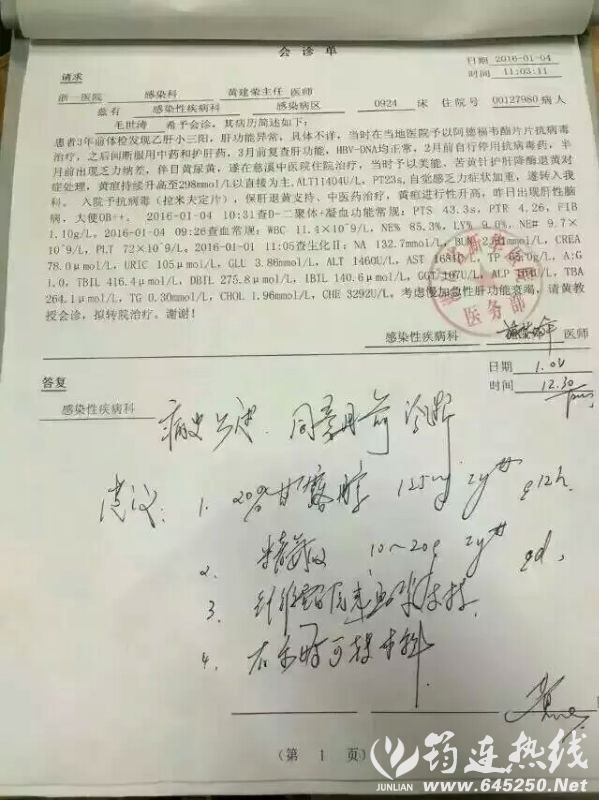 会诊单
日期 2016-01-04
请求
时间 11:03:11
浙一医院 感染科 黄建荣主任 医师
兹有 感染性疾病科 感染病区 0924 床 住院号 00127980 病人
毛世涛 希予会诊，其病历简述如下：
患者3年前体检发现乙肝小三阳，肝功能异常，具体不详，当时在当地医院予以阿德福韦酯片片抗病毒
治疗，之后间断服用中药和护肝药，3月前复查肝功能，HBV-DNA均正常，2月前自行停用抗病毒药，半
月前出现乏力纳差，伴目黄尿黄，遂在慈溪中医院住院治疗，当时予以美能、苦黄针护肝降酶退黄对
症处理，黄疸持续升高至298mmol/L以直接为主，ALT11404U/L，PT23s，自觉感乏力症状加重，遂转入我
科。 入院予抗病毒（拉米夫定片），保肝退黄支持、中医药治疗，黄疸进行性升高，昨日出现肝性脑
病，大便OB++。 2016-01-04 10:31查D-二聚体+凝血功能常规：PTS 43.3s, PTR 4.26, FIB
1.10g/L。2016-01-04 09:26查血常规：WBC 11.4×10^9/L, NE% 85.3%, LY% 9.0%, NE# 9.7×
10^9/L, PLT 72×10^9/L。2016-01-01 11:05查生化II：NA 132.7mmol/L, BUN mmol/L, CREA
78.0μmol/L, URIC 105μmol/L, GLU 3.86mmol/L, ALT 1460U/L, AST 1681U/L, TP 65.0g/L, A:G
1.0, TBIL 416.4μmol/L, DBIL 275.8μmol/L, IBIL 140.6μmol/L, GGT 107U/L, ALP 164U/L, TBA
264.1μmol/L, TG 0.30mmol/L, CHOL 1.96mmol/L, CHE 3292U/L。考虑慢加急性肝功能衰竭，请黄教
授会诊，拟转院治疗。谢谢！
医务部
感染性疾病科 医师
日期 1.04
答复
时间 12.30
感染性疾病科
病史 同意目前诊断
建议：1. 20%甘露醇 125 q12h.
2. 精氨酸 10~20g qd.
3. 血浆支持
4. 可转本科
（第 1 页）
筠连热线
JUNLIAN www.645250.Net